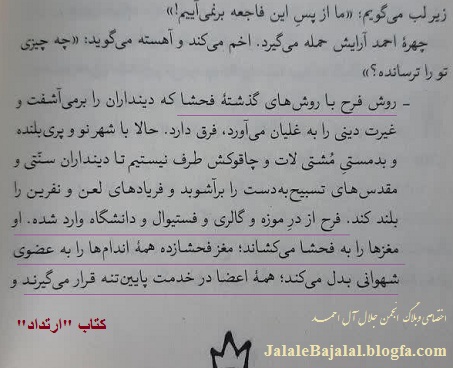 زیر لب می‌گویم: «ما از پسِ این فاجعه برنمی‌آییم!»
چهرهٔ احمد آرایش حمله می‌گیرد. اخم می‌کند و آهسته می‌گوید: «چه چیزی
تو را ترسانده؟»
ـ روش فرح با روش‌های گذشتهٔ فحشا که دینداران را برمی‌آشفت و
غیرت دینی را به غلیان می‌آورد، فرق دارد. حالا با شهرنو و پری‌بلنده
و بدمستیِ مُشتی لات و چاقوکش طرف نیستیم تا دینداران سنّتی و
مقدس‌های تسبیح‌به‌دست را برآشوبد و فریادهای لعن و نفرین را
بلند کند. فرح از درِ موزه و گالری و فستیوال و دانشگاه وارد شده. او
مغزها را به فحشا می‌کشاند؛ مغز فحشازده همهٔ اندام‌ها را به عضوی
شهوانی بدل می‌کند؛ همهٔ اعضا در خدمت پایین‌تنه قرار می‌گیرند و
اختصاصی وبلاگ انجمن جلال آل احمد
کتاب "ارتداد"
JalaleBajalal.blogfa.com